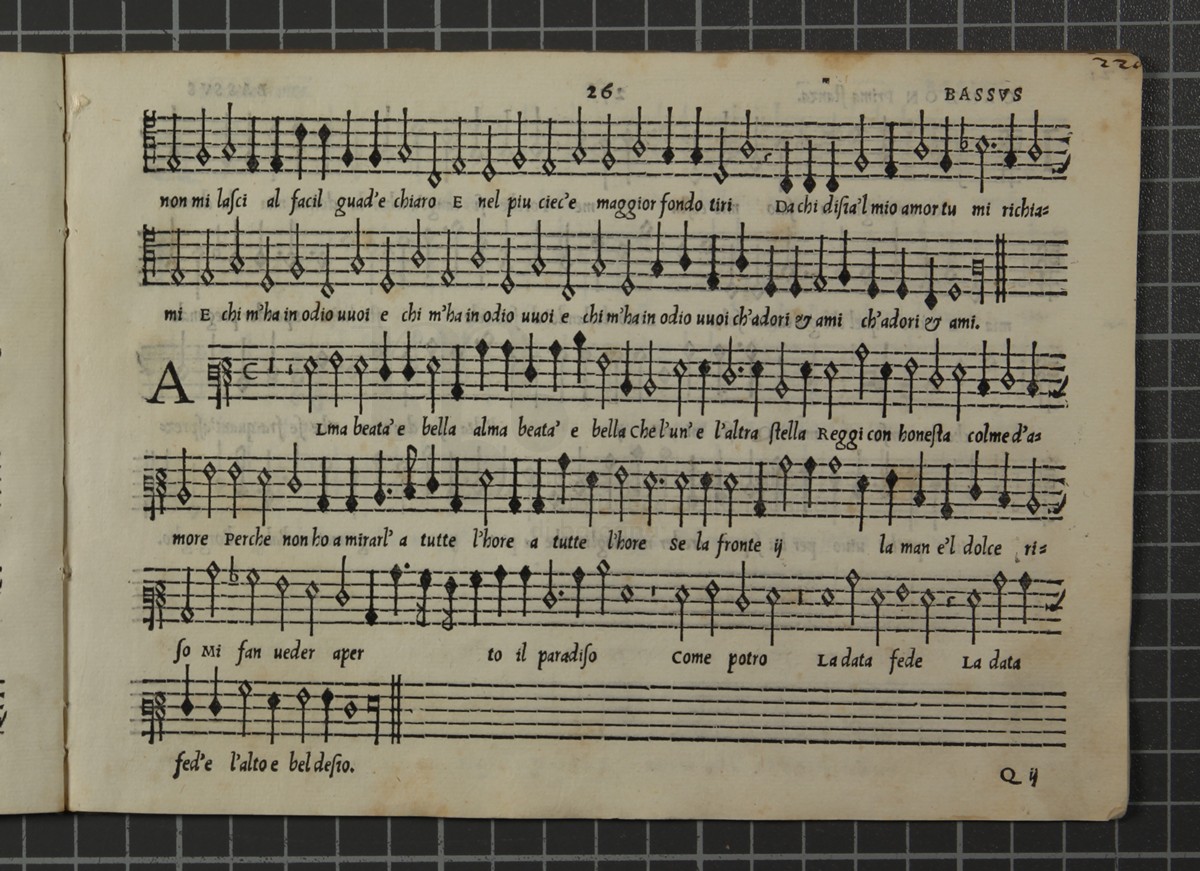 26
BASSVS
22
non mi lasci al facil guad'e chiaro E nel piu ciec'e maggior fondo tiri Da chi disia'l mio amor tu mi richia=
mi E chi m'ha in odio uuoi e chi m'ha in odio uuoi e chi m'ha in odio uuoi ch'adori & ami ch'adori & ami.
A
Lma beata' e bella alma beata' e bella Che l'un' e l'altra stella Reggi con honesta colme d'a=
more Perche non ho a mirarl' a tutte l'hore a tutte l'hore Se la fronte ij la man e'l dolce ri=
so Mi fan ueder aper to il paradiso Come potro La data fede La data
fed'e l'alto e bel desio.
Q ij